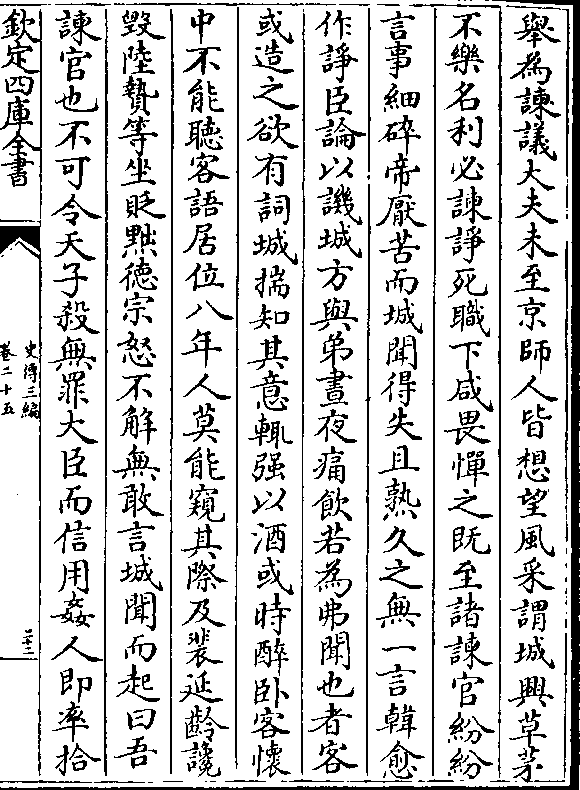 舉為諫議大夫未至京師人皆想望風采謂城興草茅
不樂名利必諫諍死職下咸畏憚之既至諸諫官紛紛
言事細碎帝厭苦而城聞得失且熟久之無一言韓愈
作諍臣論以譏城方與弟晝夜痛飲若為弗聞也者客
或造之欲有詞城揣知其意輒强以酒或時醉卧客懷
中不能聽客語居位八年人莫能窺其際及裴延齡讒
毀陸贄等坐貶黜德宗怒不解無敢言城聞而起曰吾
諫官也不可令天子殺無罪大臣而信用姦人即率拾
欽定四庫全書
史傳三編
卷二十五